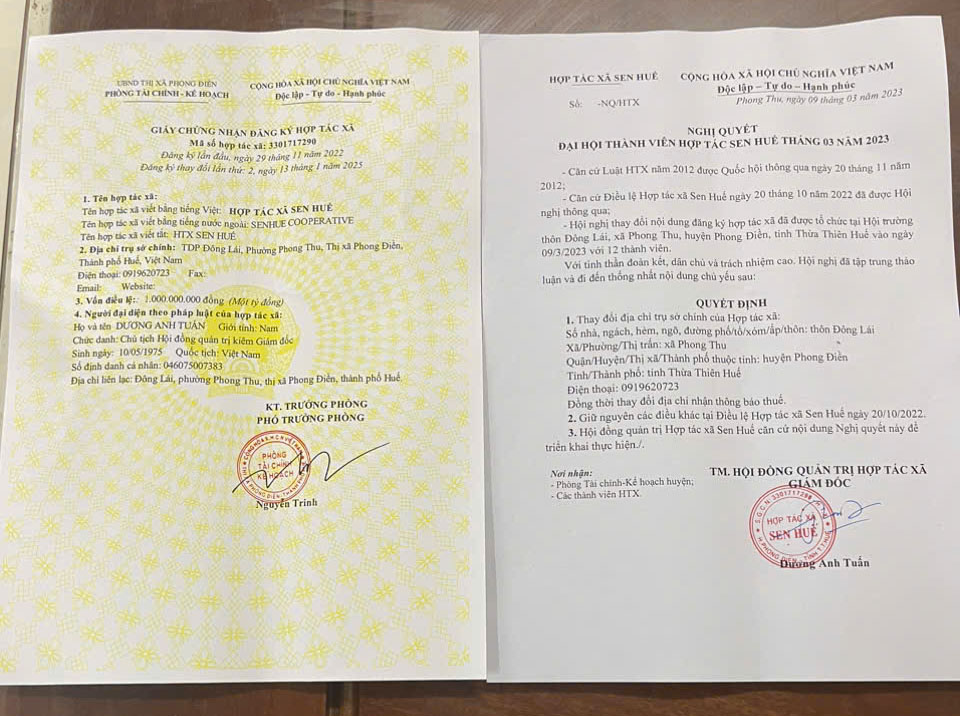 UBND THỊ XÃ PHONG ĐIỀN
PHÒNG TÀI CHÍNH - KẾ HOẠCH
CỘNG HÒA XÃ HỘI CHỦ NGHĨA VIỆT NAM
Độc lập - Tự do - Hạnh phúc
GIẤY CHỨNG NHẬN ĐĂNG KÝ HỢP TÁC XÃ
Mã số hợp tác xã: 3301717290
Đăng ký lần đầu, ngày 29 tháng 11 năm 2022
Đăng ký thay đổi lần thứ: 2, ngày 13 tháng 1 năm 2025
1. Tên hợp tác xã:
Tên hợp tác xã viết bằng tiếng Việt: HỢP TÁC XÃ SEN HUẾ
Tên hợp tác xã viết bằng tiếng nước ngoài: SENHUE COOPERATIVE
Tên hợp tác xã viết tắt: HTX SEN HUẾ
2. Địa chỉ trụ sở chính: TDP Đông Lái, Phường Phong Thu, Thị xã Phong Điền,
Thành phố Huế, Việt Nam
Điện thoại: 0919620723 Fax:
Email: Website:
3. Vốn điều lệ:: 1.000.000.000 đồng (Một tỷ đồng)
4. Người đại diện theo pháp luật của hợp tác xã:
Họ và tên DƯƠNG ANH TUẤN Giới tính: Nam
Chức danh: Chủ tịch Hội đồng quản trị kiêm Giám đốc
Sinh ngày: 10/05/1975 Quốc tịch: Việt Nam
Số định danh cá nhân: 046075007383
Địa chỉ liên lạc: Đông Lái, phường Phong Thu, thị xã Phong Điền, thành phố Huế
KT. TRƯỞNG PHÒNG
PHÓ TRƯỞNG PHÒNG
PHÒNG
TÀI CHÍNH
KẾ HOẠCH
Nguyễn Trinh
HỢP TÁC XÃ SEN HUẾ
Số: -NQ/HTX
CỘNG HÒA XÃ HỘI CHỦ NGHĨA VIỆT NAM
Độc lập – Tự do – Hạnh phúc
Phong Thu, ngày 09 tháng 03 năm 2023
NGHỊ QUYẾT
ĐẠI HỘI THÀNH VIÊN HỢP TÁC SEN HUẾ THÁNG 03 NĂM 2023
- Căn cứ Luật HTX năm 2012 được Quốc hội thông qua ngày 20 tháng 11 năm
2012;
- Căn cứ Điều lệ Hợp tác xã Sen Huế ngày 20 tháng 10 năm 2022 đã được Hội
nghị thông qua;
- Hội nghị thay đổi nội dung đăng ký hợp tác xã đã được tổ chức tại Hội trường
thôn Đông Lái, xã Phong Thu, huyện Phong Điền, tỉnh Thừa Thiên Huế vào ngày
09/3/2023 với 12 thành viên.
Với tinh thần đoàn kết, dân chủ và trách nhiệm cao. Hội nghị đã tập trung thảo
luận và đi đến thống nhất nội dung chủ yếu sau:
QUYẾT ĐỊNH
1. Thay đổi địa chỉ trụ sở chính của Hợp tác xã:
Số nhà, ngách, hẻm, ngõ, đường phố/tổ/xóm/ấp/thôn: thôn Đông Lái
Xã/Phường/Thị trấn: xã Phong Thu
Quận/Huyện/Thị xã/Thành phố thuộc tỉnh: huyện Phong Điền
Tỉnh/Thành phố: tỉnh Thừa Thiên Huế
Điện thoại: 0919620723
Đồng thời thay đổi địa chỉ nhận thông báo thuế.
2. Giữ nguyên các điều khác tại Điều lệ Hợp tác xã Sen Huế ngày 20/10/2022.
3. Hội đồng quản trị Hợp tác xã Sen Huế căn cứ nội dung Nghị quyết này để
triển khai thực hiện./.
Nơi nhận:
- Phòng Tài chính-Kế hoạch huyện;
- Các thành viên HTX.
TM. HỘI ĐỒNG QUẢN TRỊ HỢP TÁC XÃ
GIÁM ĐỐC
HỢP TÁC XÃ
SEN HUẾ
Dương Anh Tuấn